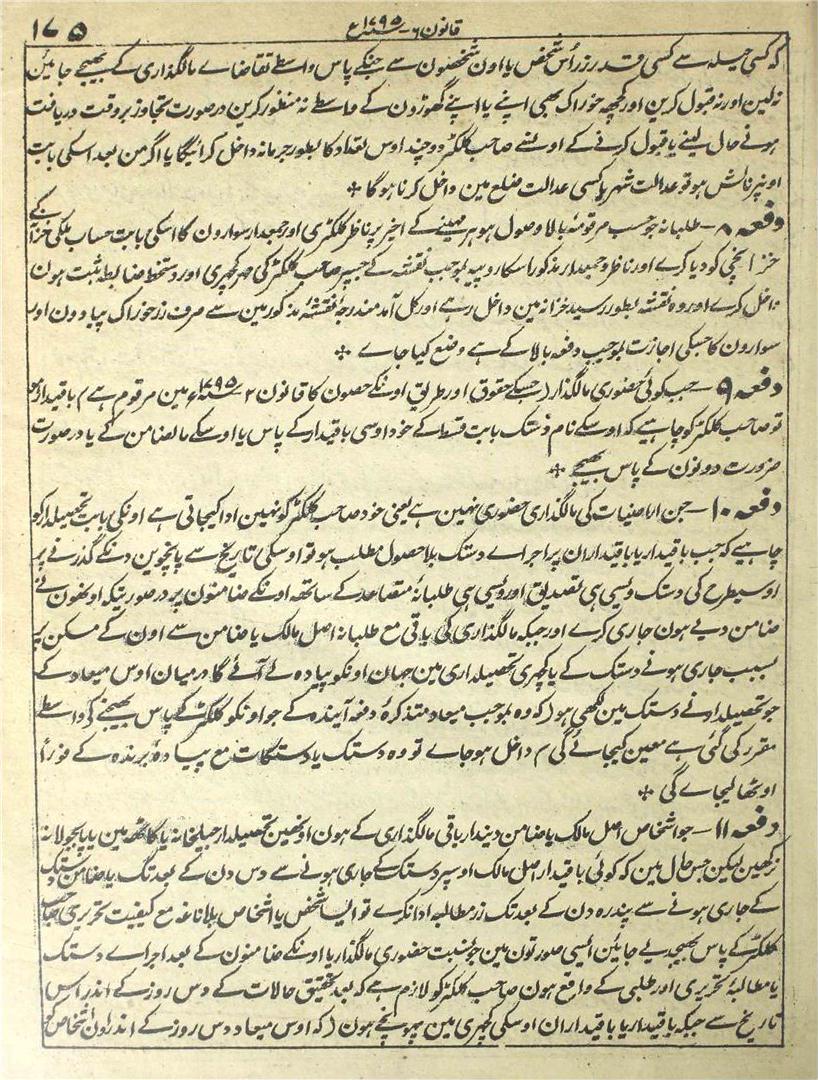 قانون ۶ - سنہ ۱۷۹۵ ع ۱۷۵
کہ کسی حیلہ سے کسی قدر زر اُس شخص یا اون شخصون سے جنکے پاس واسطے تقاضاے مالگذاری کے بھیجے جائین
نہ لین اور نہ قبول کرین اور کچھہ خوراک بھی اپنے یا اپنے گھوڑون کے واسطے نہ منظور کرین در صورت تجاوز بر وقت دریافت
ہونے حال لینے یا قبول کرنے کے اوسنے صاحب کلکٹر دوچند اوس تعداد کا بطور جرمانہ داخل کرائیگا یا اگر من بعد اسکی بابت
اونپر نالش ہو تو عدالت شہر یا کسی عدالت ضلع مین داخل کرنا ہو گا ✤
دفعہ ۸ – طلبانہ جو حسب مرقومۂ بالا وصول ہو ہر مہینے کے اخیر پر ناظر کلکٹری اور جمعدار سوارون کا اسکی بابت حساب ملکی خزانے کے
خزانچی کو دیا کرے اور ناظر و جمعدار مذکور اسکا روپیہ بموجب نقشہ کے جسپر صاحب کلکٹر کی مہر کچہری اور دستخط ضابطہ ثبت ہون
داخل کرے اور وہ نقشہ بطور رسید خزانہ مین داخل رہے اور کل آمد مندرجۂ نقشۂ مذکور مین سے صرف زر خوراک پیادون اور
سوارون کا جسکی اجازت بموجب دفعہ بالا کے ہے وضع کیا جاے ✤
دفعہ ۹ – جب کوئی حضوری مالگذار (جسکے حقوق اور طریق اونکے حصون کا قانون ۲ سنہ ۱۷۹۵ع مین مرقوم ہے) باقیدار ہو
تو صاحب کلکٹر کو چاہیے کہ اوسکے نام دستک بابت قسط کے خود اوسی باقیدار کے پاس یا اوسکے مالضامن کے یا در صورت
ضرورت دونون کے پاس بھیجے ✤
دفعہ ۱۰ – جن اراضیات کی مالگذاری حضوری نہین ہے یعنی خود صاحب کلکٹر کو نہین ادا کیجاتی ہے اونکی بابت تحصیلدار کو
چاہیے کہ جب باقیدار یا باقیداران پر اجراے دستک بلا حصول مطلب ہو تو اوسکی تاریخ سے پانچوین دنکے گذرنے پر
اوسیطرح کی دستک ویسی ہی تصدیق اور ویسی ہی طلبانۂ متصاعد کے ساتھہ اونکے ضامنون پر در صورتیکہ اونھون نے
ضامن دیے ہون جاری کرے اور جبکہ مالگذاری کی باقی مع طلبانہ اصل مالک یا ضامن سے اون کے مسکن پر
بسبب جاری ہونے دستک کے یا کچہری تحصیلداری مین جہان اونکو پیادہ لے آئے گا درمیان اوس میعاد کے
جو تحصیلدار نے دستک مین لکھی ہو (کہ وہ بموجب میعاد متذکرۂ دفعہ آیندہ کے جو اونکو کلکٹر کے پاس بھیجنے کی واسطے
مقرر کی گئی ہے معین کیجائے گی) داخل ہو جاے تو وہ دستک یا دستکات مع پیادہ برندہ کے فوراً
اوٹھا لیجاے گی ✤
دفعہ ۱۱ – جو اشخاص اصل مالک یا ضامن دیندار باقی مالگذاری کے ہون اونھین تحصیلدار جیلخانہ یا کاٹھہ مین یا پابجولانہ
نرکھین لیکن جس حال مین کہ کوئی باقیدار اصل مالک اوسپر دستک کے جاری ہونے سے دس دن کے بعد تک یا ضامن دستک
کے جاری ہونے سے پندرہ دن کے بعد تک زر مطالبہ ادا نکرے تو ایسا شخص یا اشخاص بلا ناغہ مع کیفیت تحریری صاحب
کلکٹر کے پاس بھیجدیے جائین ایسی صورتون مین جو نسبت حضوری مالگذار یا اونکے ضامنون کے بعد اجراے دستک
یا مطالبۂ تحریری اور طلبی کے واقع ہون صاحب کلکٹر کو لازم ہے کہ بعد تحقیق حالات کے دس روز کے اندر اس
تاریخ سے جبکہ باقیدار یا باقیداران اوسکی کچہری مین پہونچے ہون (کہ اوس میعاد دس روز کے اندر اون اشخاص کو